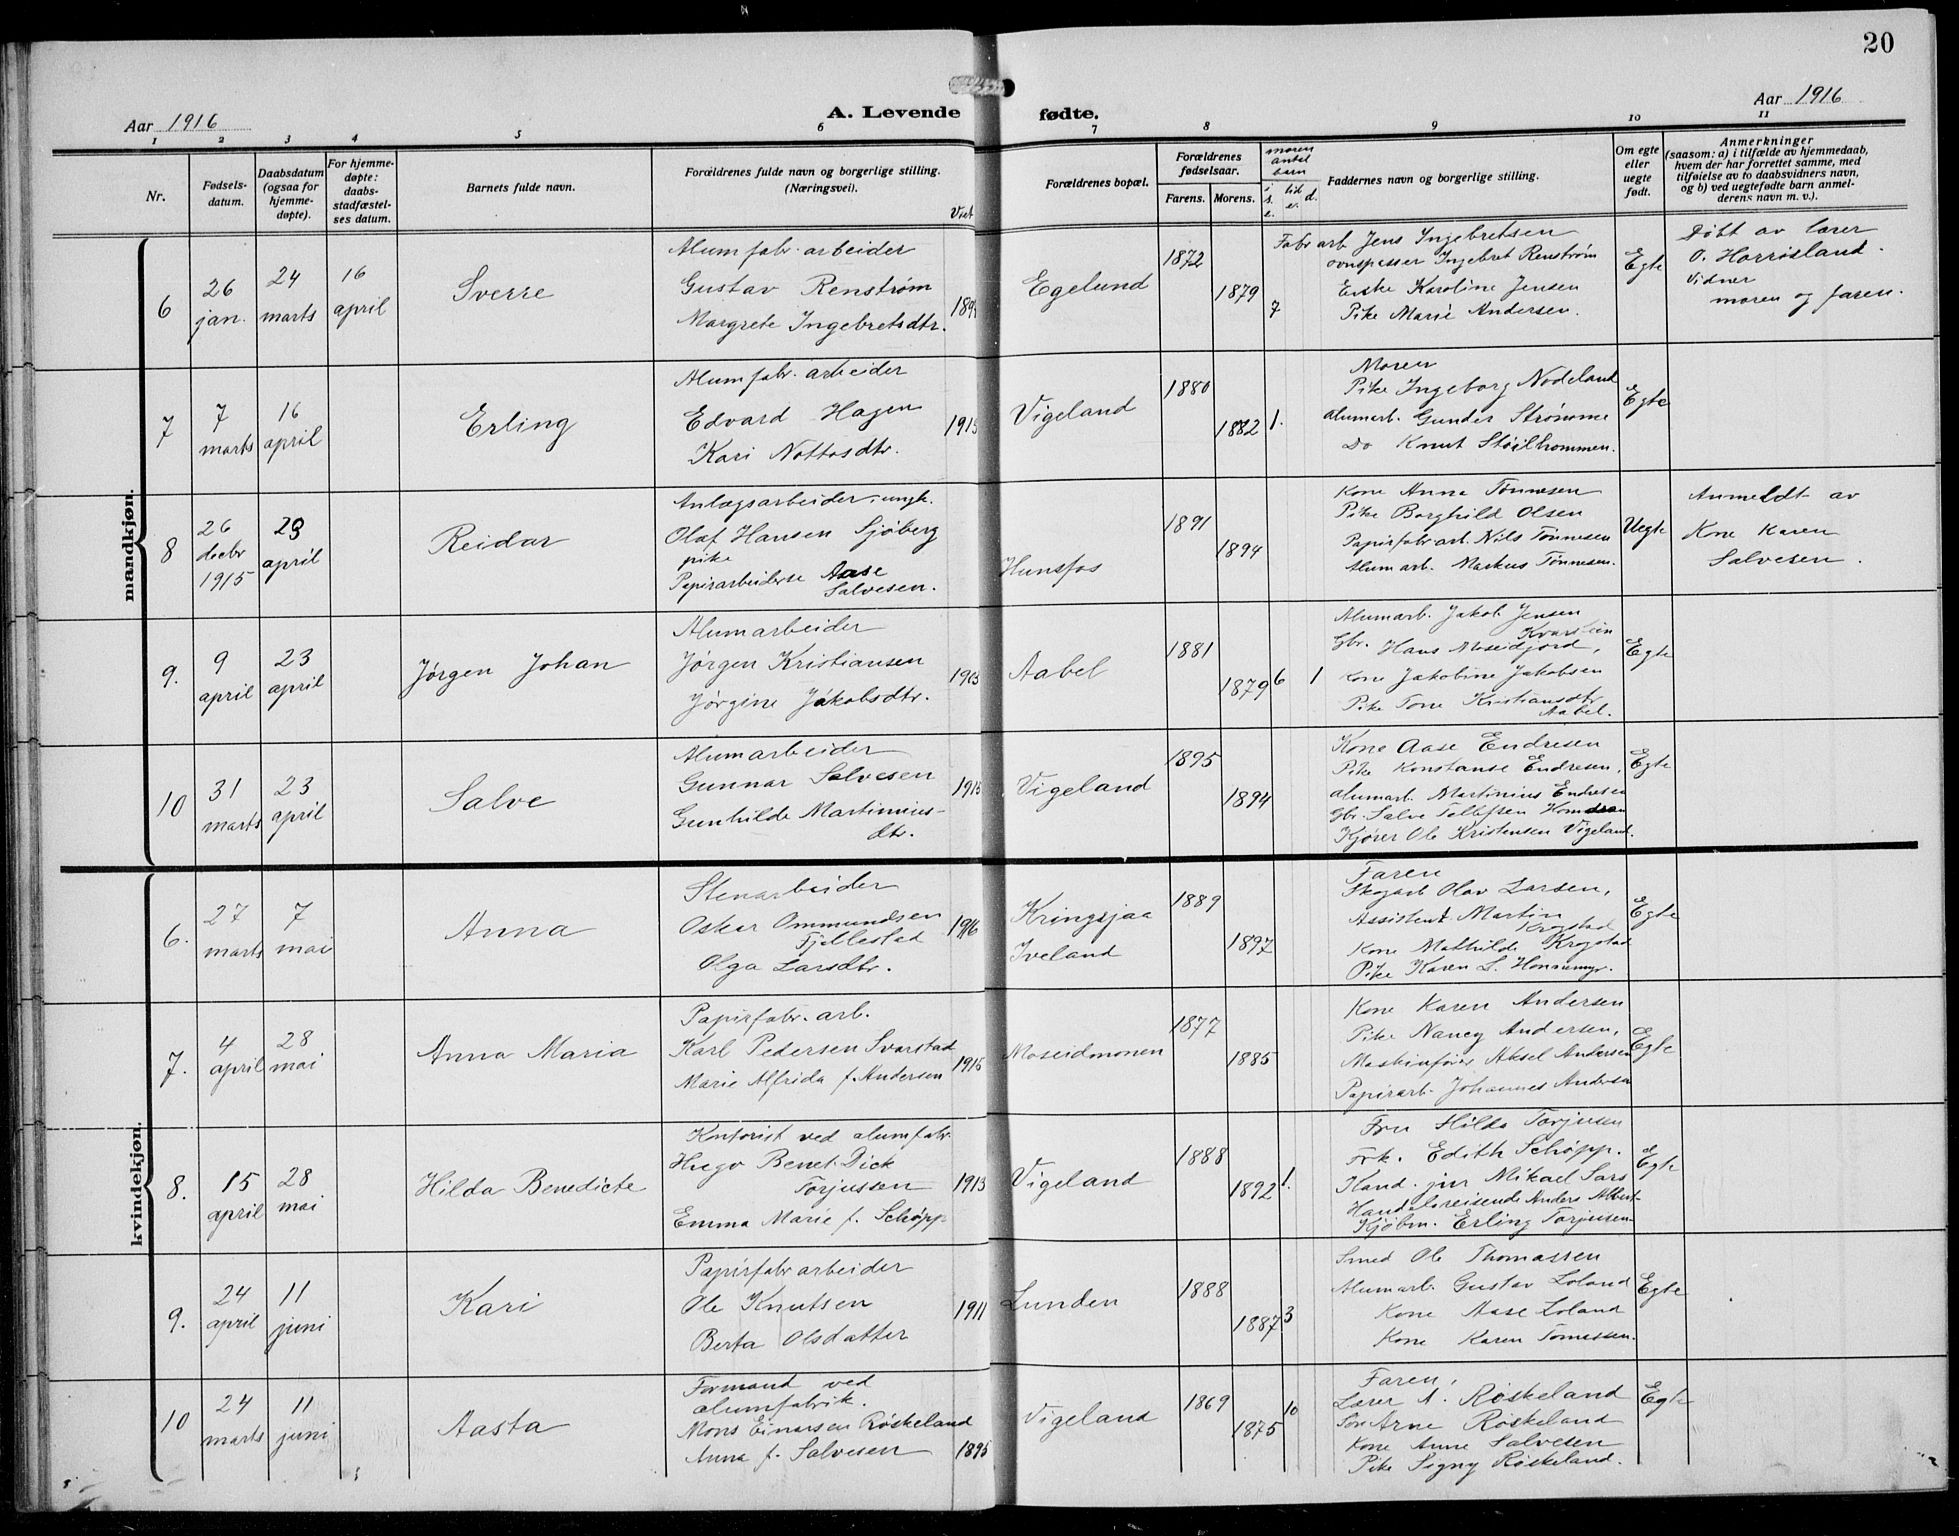 20
Aar 1916
A. Levende fødte.
Aar 1916
1 2 3 4 5 6 7 8 9 10 11
Nr.
Fødsels-
datum.
Daabsdatum
(ogsaa for
hjemme-
døpte).
For hjemme-
døpte:
daabs-
stadfæstel-
ses datum.
Barnets fulde navn.
Forældrenes fulde navn og borgerlige stilling.
(Næringsvei).
Viet
Forældrenes bopæl.
Forældrenes
fødselsaar.
Farens. Morens.
moren
antal
barn
Faddernes navn og borgerlige stilling.
Om egte
eller
uegte
født.
Anmerkninger
(saasom: a) i tilfælde av hjemmedaab,
hvem der har forrettet samme, med
tilføielse av to daabsvidners navn,
og b) ved uegtefødte barn anmel-
derens navn m. v.).
mandkjøn.
6
26
jan.
24
marts
16
april
Sverre
Alumfabr. arbeider
Gustav Renstrøm
Margrete Ingebretsdtr.
Egelund
1872
1879
7
Fabr arb Jens Ingebretsen
ovnspasser Ingebret Renstrøm
Enke Karoline Jensen
Pike Marie Andersen.
Egte
Døbt av lærer
O. Horrisland.
Vidner
moren og faren.
7
7
marts
16
april
Erling
Alumfabr. arbeider
Edvard Hagen
Kari Nottosdtr.
1915
Vigeland
1880
1882
1.
Moren
Pike Ingeborg Nodeland
alumarb. Gunder Strømme
Do Knut Støilhommen.
Egte
8
26
decbr
1915
23
april
Reidar
Anlægsarbeider, ungk.
Olaf Hansen Sjøberg
pike
Papirarbeiderse Aase
Salvesen.
Hunsfos
1891
1894
Kone Anna Tønnesen
Pike Borghild Olsen
Papirfabr arb. Nils Tønnesen
Alum arb. Markus Tønnesen.
Uegte
Anmeldt av
Kone Karen
Salvesen.
9.
9
april
23
april
Jørgen Johan
Alumarbeider
Jørgen Kristiansen
Jørgine Jakobsdtr.
1903
Aabel
1881
1879
6 1
Alumarb. Jakob Jensen
Kvarstein
Gbr. Hans Moseidjord,
Kone Jakobine Jakobsen
Pike Tone Kristiansdtr
Aabel.
Egte
10
31
marts
23
april
Salve
Alumarbeider
Gunnar Salvesen
Gunhilde Martinius-
dtr.
1915
Vigeland
1895
1894
Kone Aase Endresen
Pike Konstanse Endresen,
alumarb. Martinius Endresen
Gbr. Salve Tellefsen Homdrom
Kjører Ole Kristensen Vigeland.
Egte
kvindekjøn.
6.
27
marts
7
mai
Anna
Stenarbeider
Oskar Ommundsen
Fjellestad
Olga Larsdtr.
1916
Kringsjaa
Iveland
1889
1897
Faren
Skogarb Olav Larsen,
Assistent Martin
Krogstad
Kone Mathilde Krogstad
Pike Karen L. Honnemyr.
Egte
7.
4
april
28
mai
Anna Maria
Papirfabr. arb.
Karl Pedersen Svarstad
Marie Alfrida f. Andersen
1915
Moseidmonen
1877
1885
Kone Karen Andersen
Pike Nancy Andersen,
Maskinfører Aksel Andersen
Papirarb. Johannes Andersen
Egte
8.
15
april
28
mai
Hilda Benedicte
Kontorist ved alumfabr.
Hugo Benet. Dick
Torjussen
Emma Marie f. Schøpp
1913
Vigeland
1888
1892
1.
Fru Hilda Torjusen
Frk. Edith Schøpp.
Kand. jur Mikael Sars
Handelsreisende Anders Albert
Kjøbm. Erling Torjusen
Egte
9.
24
april
11
juni
Kari
Papirfabr arbeider
Ole Knutsen
Berta Olsdatter
1911
Lunden
1888
1887
3
Smed Ole Thomassen
Alumarb. Gustav Loland
Kone Aase Loland
Kone Karen Tomassen.
Egte
10
24
marts
11
juni
Aasta
Formand ved
alumfabrik.
Mons Einarsen Røskeland
Anna f. Salvesen
1895
Vigeland
1869
1875
10
Faren,
Lærer A. Røskeland
Søn Arne Røskeland
Kone Anne Salvesen
Pike Signy Røskeland.
Egte